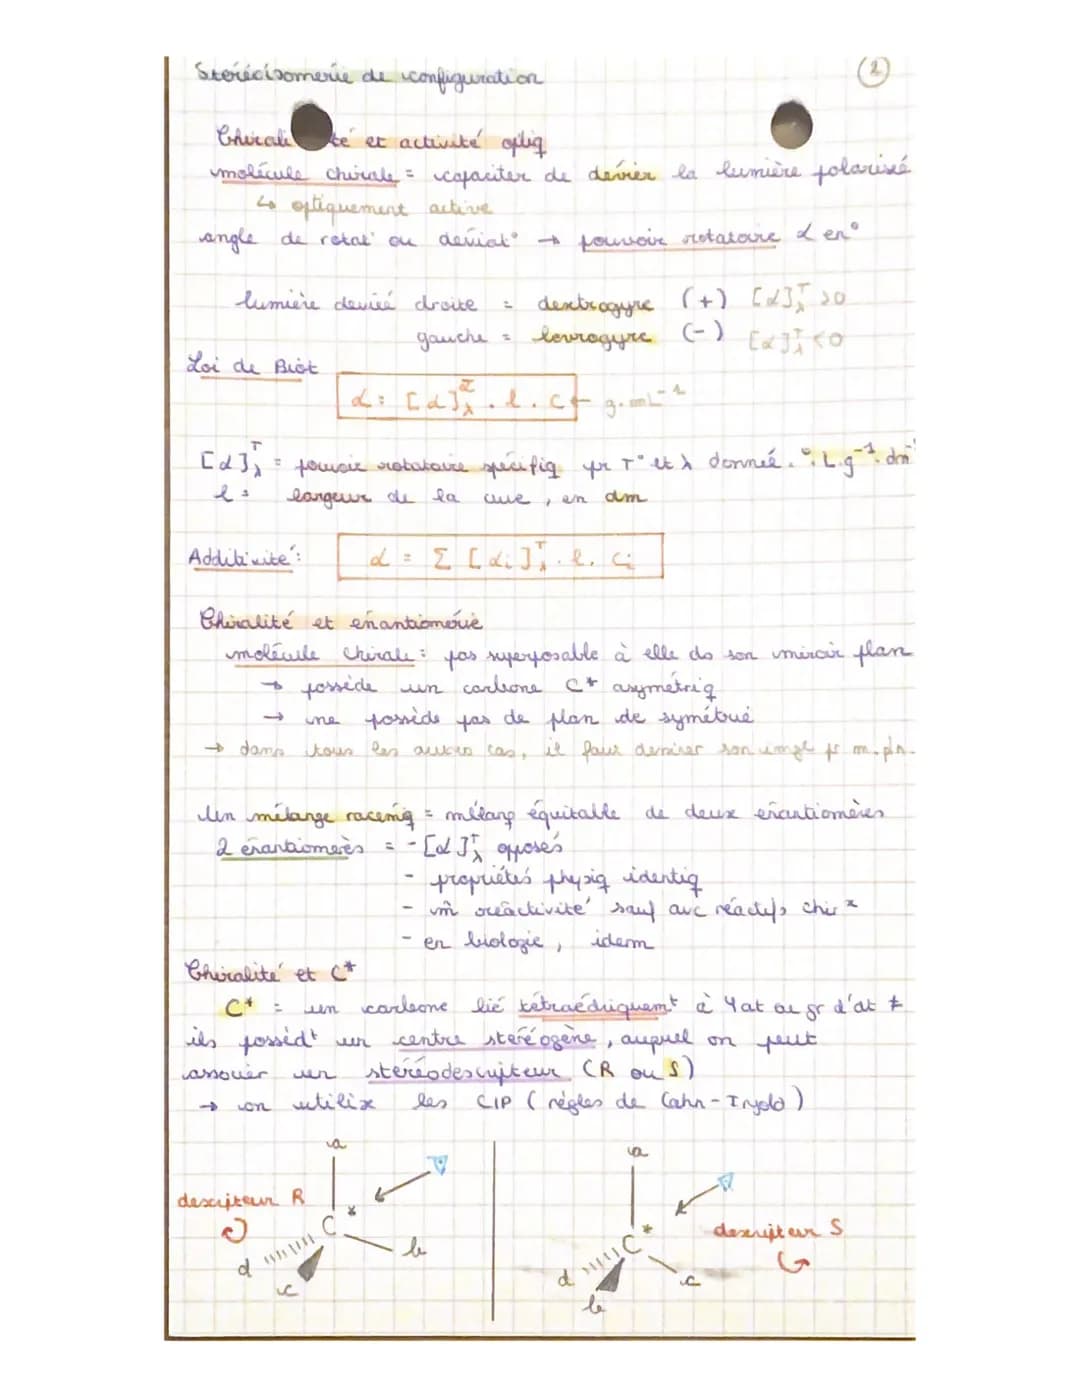 Stéréoisomerie de configuration
2
Chiralité et activité optiq
molécule chirale = capaciter de dévier la lumière polarisé
↳ optiquement active
angle de rotat° ou deviat° → pouvoir rotatoire α en °
lumière deviéé droite = dextrogyre (+) [α]λT >0
gauche = levrogyre (-) [α]λT <0
Loi de Biot
α = [α]λT . l . c ← g.mL-1
[α]λT = pouvoir rotatoire spécifiq pr T° et λ donnéé. °.L.g-1.dm-1
l = largeur de la cuve, en dm
Additivité:
α = Σ [αi]λT . l . ci
Chiralité et énantiomérie
molécule chirale : pas superposable à elle ds son miroir plan
→ possède un carbone C* asymétriq
→ ne possède pas de plan de symétrié
→ dans tous les autres cas, il faut dessiner son image pr m. pln.
Un mélange racémiq = mélang équitable de deux énantiomères
2 énantiomères = - [α]λT opposés
- propriétés physiq identiq
- m̂ réactivité sauf avc réactifs chir x
- en biologie, idem
Chiralité et C*
C* = un carbone lié tétraédriquemt à 4 at ou gr d'at ≠
ils possèdt un centre stéréogène, auquel on peut
associer un stéréodescripteur (R ou S)
→ on utilise les CIP (régles de Cahn-Ingold)
a
a
descripteur R
C *
b
d
c
C *
descripteur S
d
c
b